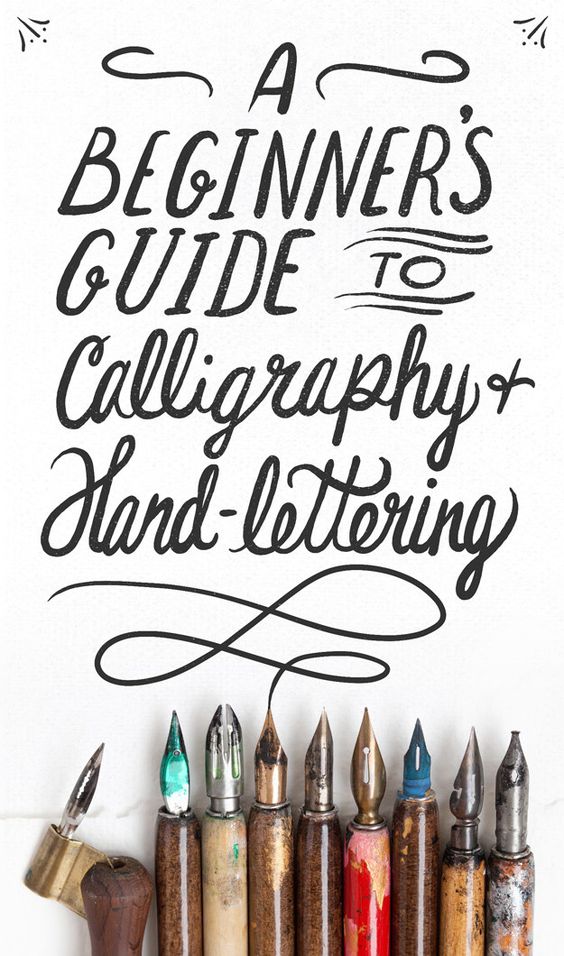 A
BEGINNER'S
GUIDE TO
Calligraphy +
Hand-lettering